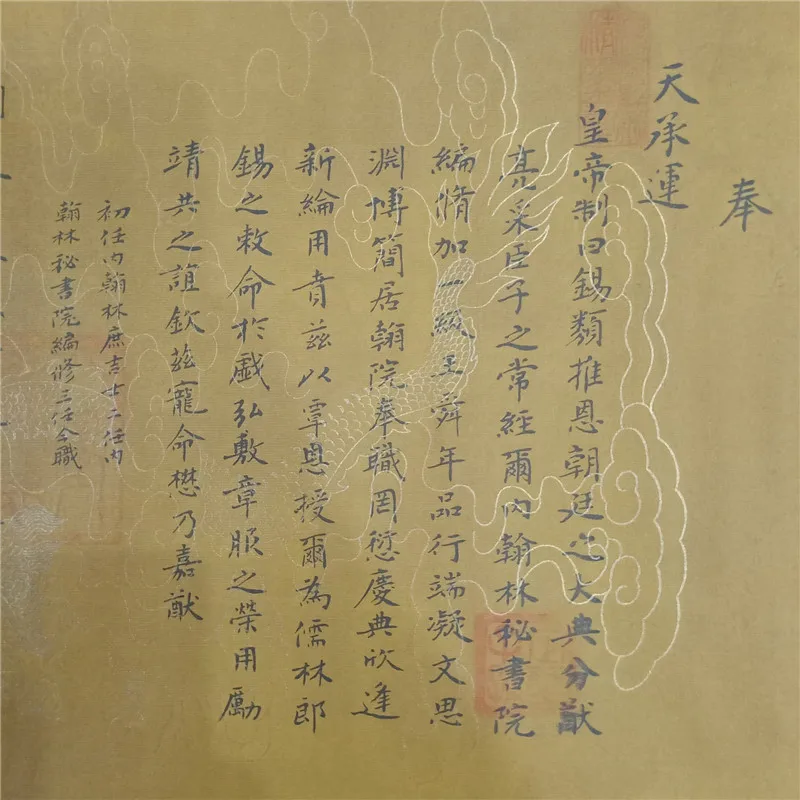 奉
天承運
皇帝制曰錫類推恩朝廷之大典分猷
亮采臣子之常經爾內翰林秘書院
編脩加一級王舜年品行端凝文思
淵博簡居翰院奉職罔愆慶典欣逢
新綸用賁茲以覃恩授爾為儒林郎
錫之敕命於戲弘敷章服之榮用勵
靖共之誼欽茲寵命懋乃嘉猷
初任內翰林庶吉士二任內
翰林秘書院編修三任今職